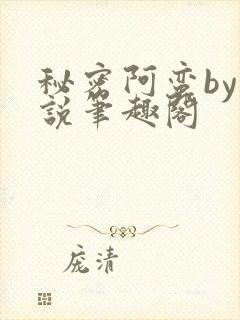 秘密阿蛮by
說筆趣閣
庞清